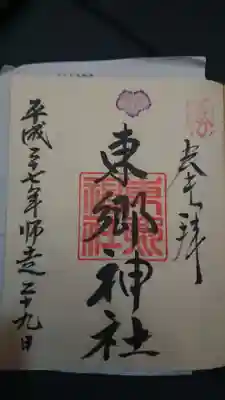 奉拝
東郷神社
平成二十七年師走二十九日